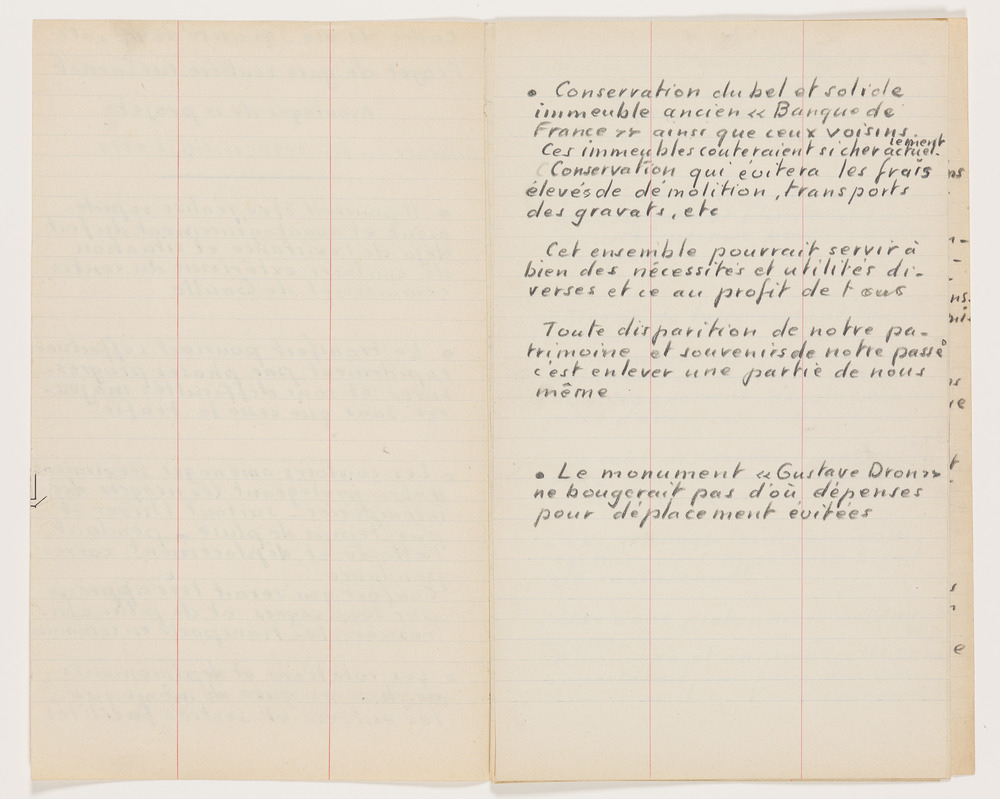 • Conservation du bel et solide
immeuble ancien « Banque de
France » ainsi que ceux voisins.
Ces immeubles couteraient si cher actuellement.
Conservation qui évitera les frais
élevés de démolition, transports
des gravats, etc
Cet ensemble pourrait servir à
bien des nécessités et utilités di-
verses et ce au profit de tous
Toute disparition de notre pa-
trimoine et souvenirs de notre passé
c'est enlever une partie de nous
même
• Le monument « Gustave Dron »
ne bougerait pas d'où dépenses
pour déplacement évitées